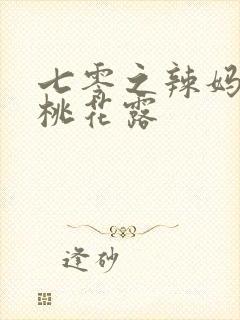 七零之辣妈
桃花露
逢砂